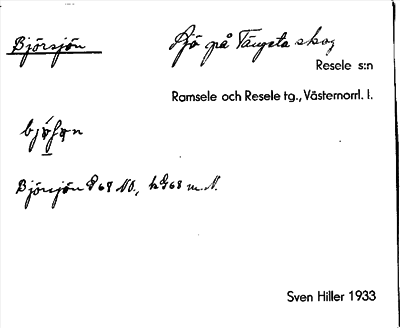 Björsjön Sjö på Tängsta skog
Resele s:n
Ramsele och Resele tg., Västernorrl. l.
Björsjön 68 NO., 68 m. N.
Sven Hiller 1933